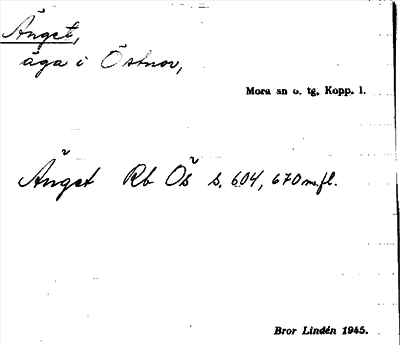 Änget,
äga i Östnor,
Mora sn o. tg, Kopp. l.
Änget Rb Ös s. 604, 670 m.fl.
Bror Lindén 1945.